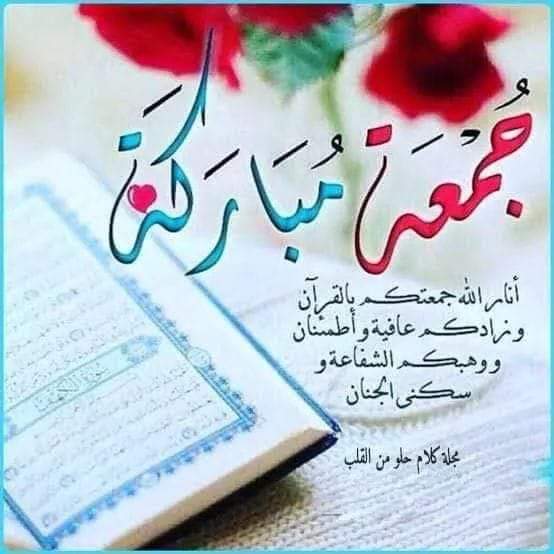 جُمْعَة مُبَارَكَة
أنار الله جمعتكم بالقرآن
و زادكم عافية و أطمئنان
و وهبكم الشفاعة و
سكنى الجنان
مجلة كلام حلو من القلب